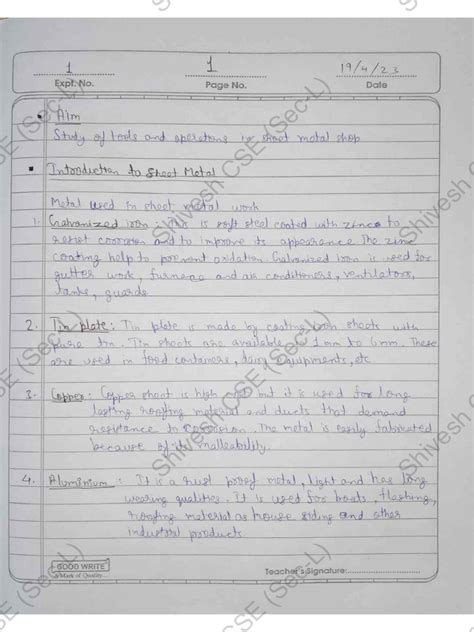 1
1
19/4/23
Expt. No.
Page No.
Date
Aim
Study of tools and operations in sheet metal shop
Introduction to Sheet Metal
Metal used in sheet metal work
1. Galvanized iron : This is soft steel coated with zinc to
resist corrosion and to improve its appearance. The zinc
coating help to prevent oxidation. Galvanized iron is used for
gutter work, furnace and air conditioners, ventilators,
tanks, guards
2. Tin plate : Tin plate is made by coating iron sheets with
pure tin. Tin sheets are available in 1mm to 6mm. These
are used in food containers, dairy equipments, etc
3. Copper : Copper sheet is high cost but it is used for long
lasting roofing material and ducts that demand
resistance to corrosion. The metal is easily fabricated
because of its malleability.
4. Aluminium : It is a rust proof metal, light and has long
wearing qualities. It is used for boats, flashing,
roofing material as house siding and other
industrial products.
GOOD WRITE
A Mark of Quality
Teacher's Signature:
Shivesh CSE (Sec-L)